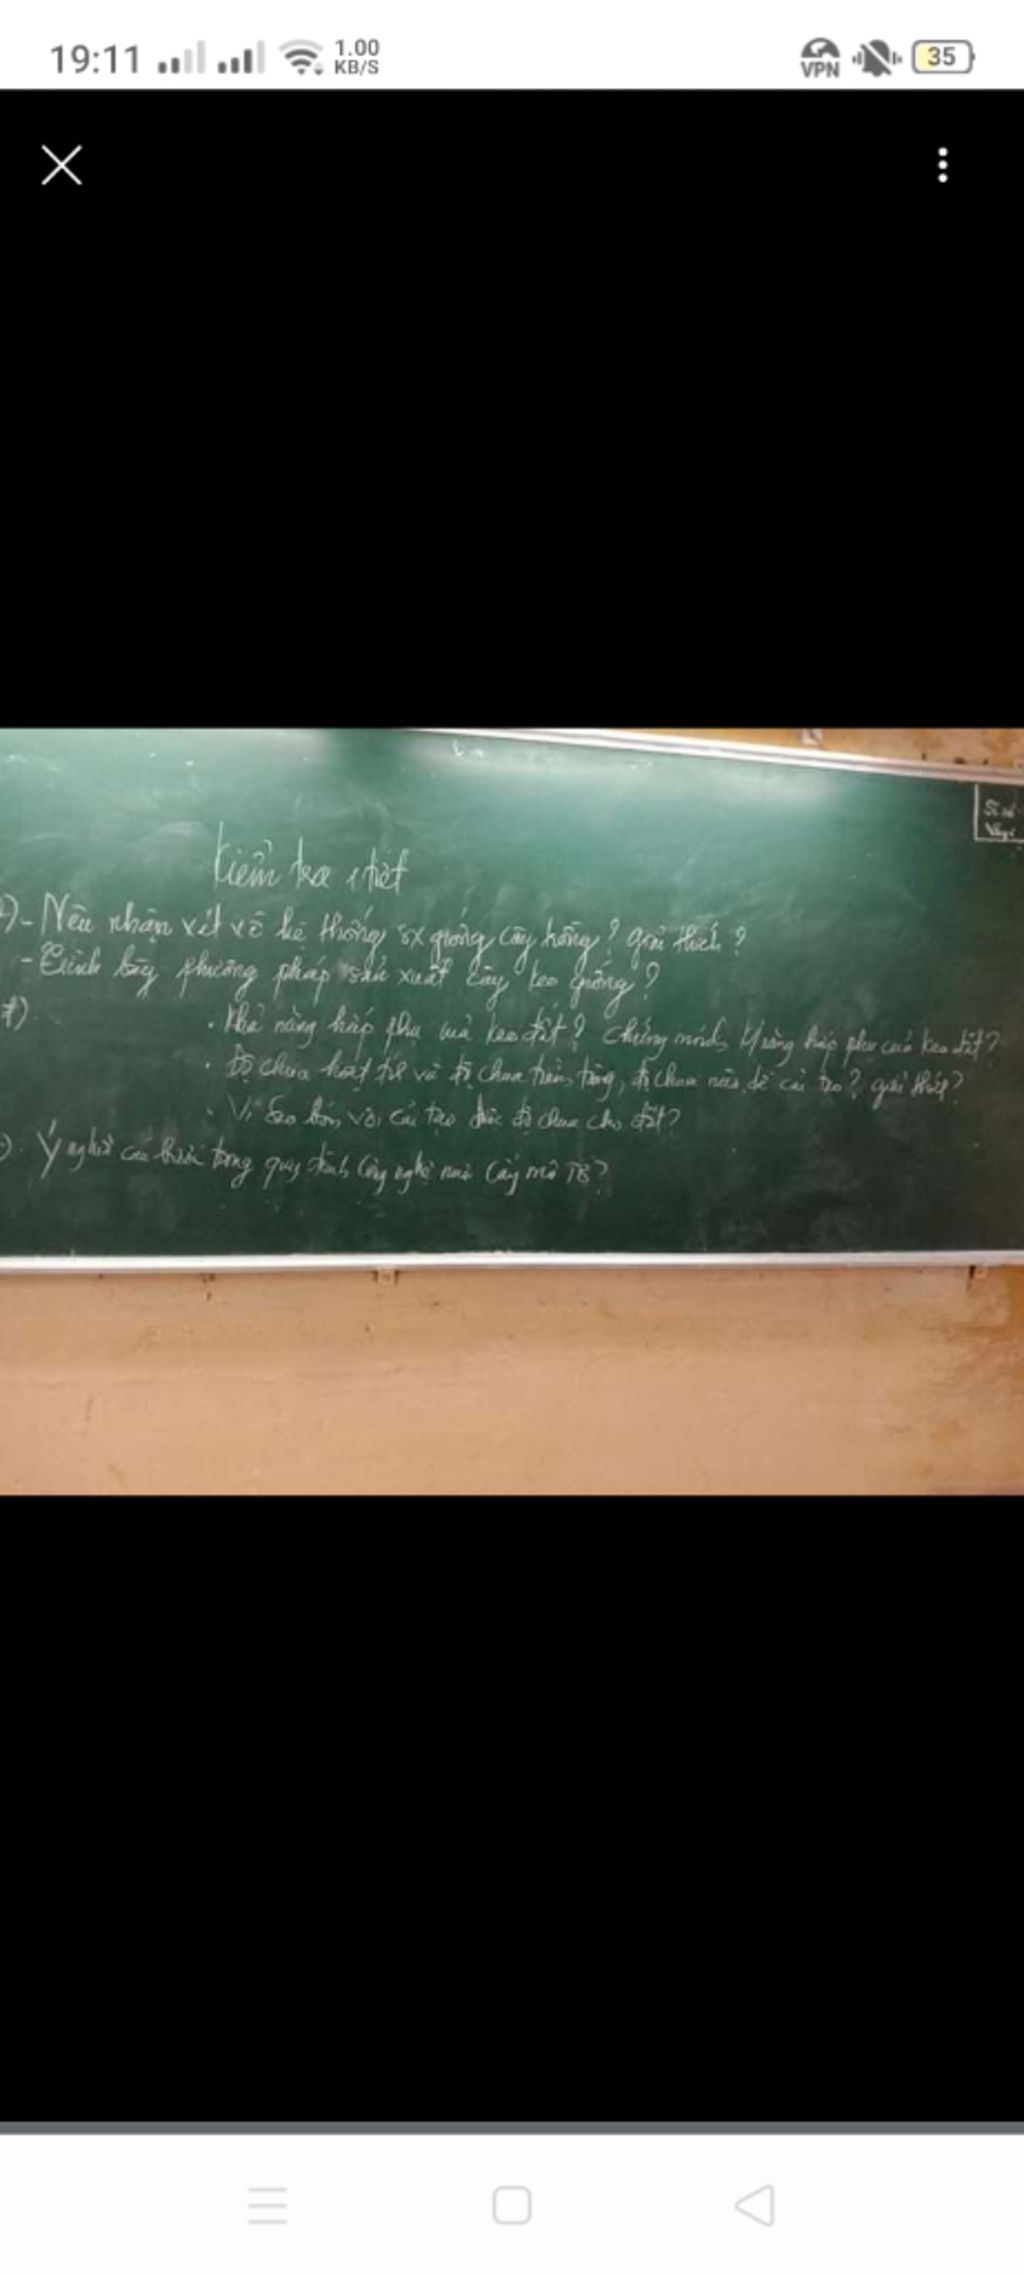 19:11
1.00
KB/S
VPN
35
Kiểm tra 1 tiết
- Nêu nhận xét về hệ thống sx giống cây trồng? giải thích?
- Trình bày phương pháp sản xuất cây keo giống?
. Khả năng hấp phụ của keo đất? Chứng minh K/năng hấp phụ của keo đất?
. Độ chua hoạt tính và độ chua tiềm tàng, độ chua nào dễ cải tạo? giải thích?
. Vì sao bón vôi cải tạo được độ chua cho đất?
. Ý nghĩa các bước trong quy trình công nghệ nuôi cấy mô TB?